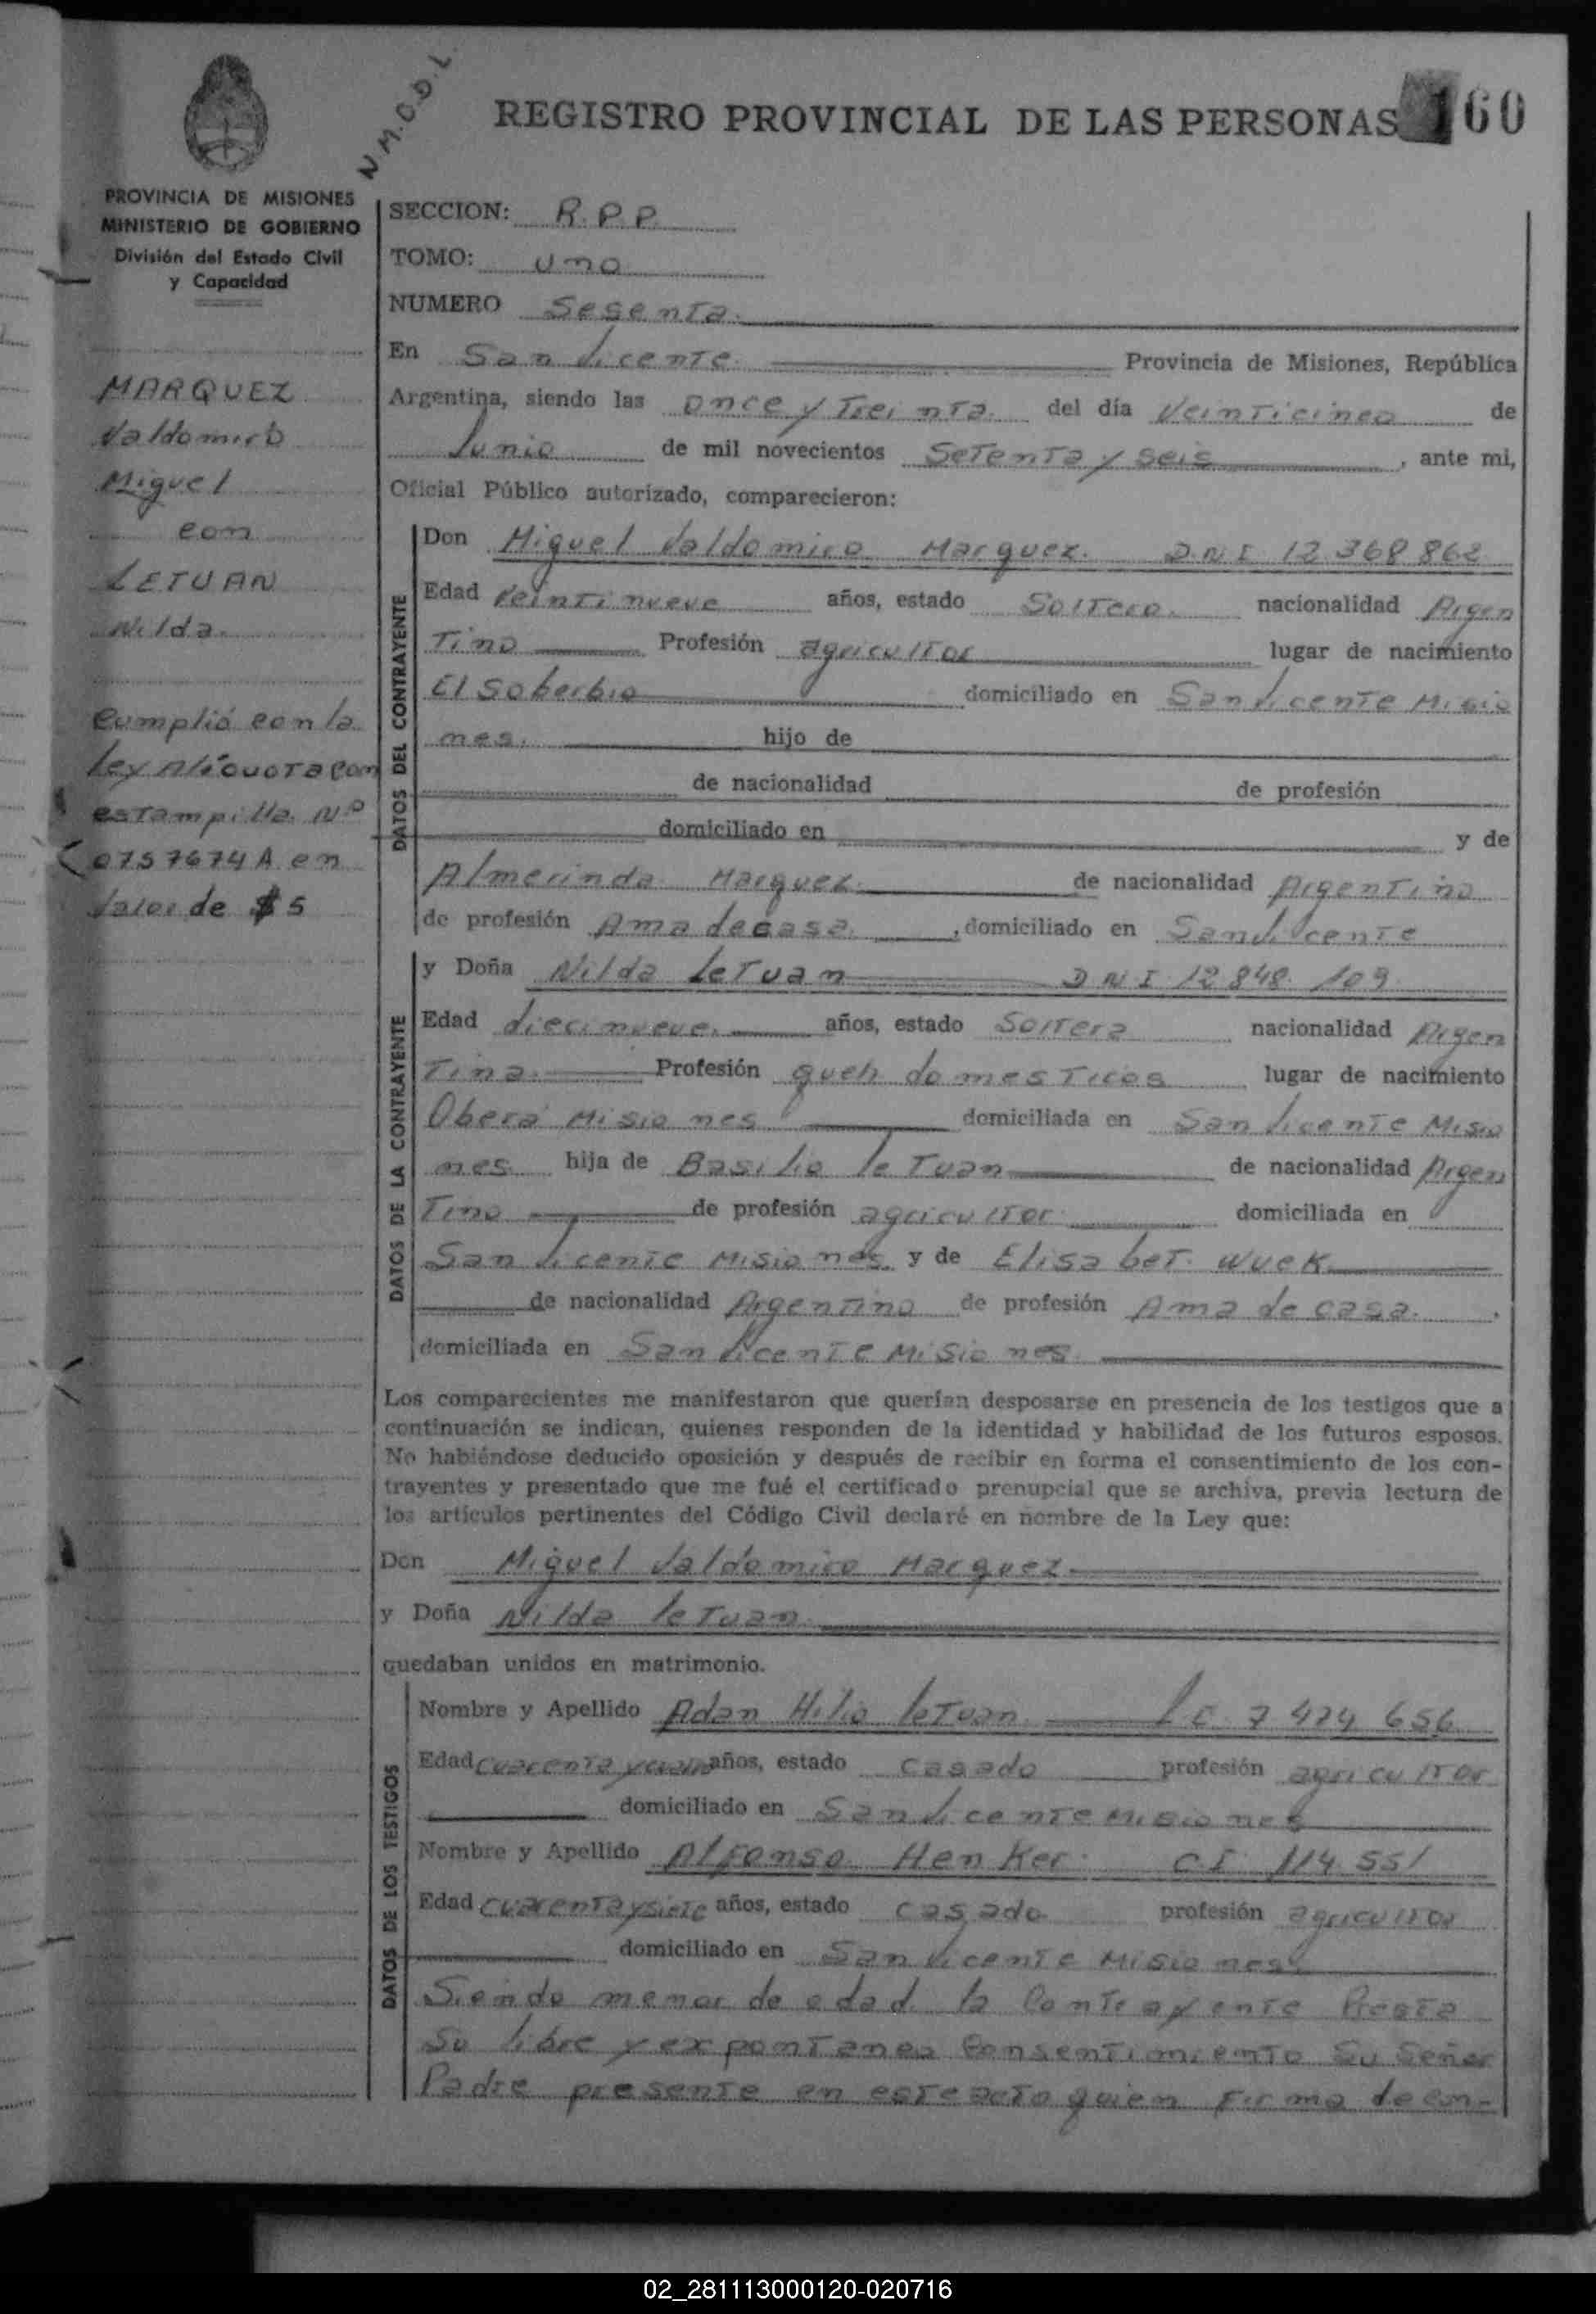 N M.O.D.L.
REGISTRO PROVINCIAL DE LAS PERSONAS 160
PROVINCIA DE MISIONES
MINISTERIO DE GOBIERNO
División del Estado Civil
y Capacidad
MARQUEZ
Valdomiro
Miguel
con
LETUAN
Nilda.
Cumplió con la
Ley Alícuota con
estampilla Nº
0757674 A en
Valor de $ 5
SECCION: R.P.P.
TOMO: uno
NUMERO Sesenta.
En San Vicente Provincia de Misiones, República
Argentina, siendo las once y Treinta. del día Veinticinco de
Junio de mil novecientos Setenta y seis, ante mi,
Oficial Público autorizado, comparecieron:
DATOS DEL CONTRAYENTE
Don Miguel Valdomiro Marquez. D.N.I 12.368.862
Edad Veintinueve años, estado Soltero. nacionalidad Argen
Tino Profesión agricultor lugar de nacimiento
El Soberbio domiciliado en San Vicente Misio
nes. hijo de
de nacionalidad de profesión
domiciliado en y de
Almerinda Marquez. de nacionalidad Argentino
de profesión Ama de casa. , domiciliado en San Vicente
DATOS DE LA CONTRAYENTE
y Doña Nilda LeTuan D N I 12.848.109
Edad diecinueve. años, estado Soltera nacionalidad Argen
Tina. Profesión queh domesticos lugar de nacimiento
Oberá Misiones domiciliada en San Vicente Misio
nes hija de Basilio leTuan de nacionalidad Argen
Tino de profesión agricultor domiciliada en
San Vicente Misiones. y de Elisabet. Wuek
de nacionalidad Argentino de profesión Ama de casa.
domiciliada en San Vicente Misiones.
Los comparecientes me manifestaron que querían desposarse en presencia de los testigos que a
continuación se indican, quienes responden de la identidad y habilidad de los futuros esposos.
No habiéndose deducido oposición y después de recibir en forma el consentimiento de los con-
trayentes y presentado que me fué el certificado prenupcial que se archiva, previa lectura de
los artículos pertinentes del Código Civil declaré en nombre de la Ley que:
Don Miguel Valdomiro Marquez.
y Doña Nilda leTuan.
quedaban unidos en matrimonio.
DATOS DE LOS TESTIGOS
Nombre y Apellido Adan Hilio leTuan L E 7 474 656
Edad cuarenta y años, estado casado profesión agricultor
domiciliado en San Vicente Misiones
Nombre y Apellido Alfonso Henker C I 114.551
Edad cuarenta y siete años, estado casado profesión agricultor
domiciliado en San Vicente Misiones.
Siendo menor de edad la Contrayente Presta
Su libre y expontaneo Consentimiento Su Señor
Padre presente en este acto quien firma de con-
02_281113000120-020716